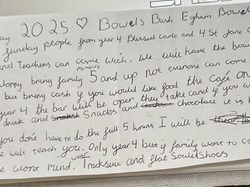 2025 ♡ Bowels Bush Egham Bowel
Sunday people from year 4 Blessed Carlo and 4 St Jane
and Teachers can come with. We will have the bow
worry bring family 5 and up not everyone can come
but bring cash if you would like food the cafe on
year 4 the bar will be open they take card if you w
drink and snacks and chocolate is a
you don't have to do the full 5 hours I will be
will teach you. Only year 4 but if family want to co
mind. Tracksuit and flat Souled Shoes